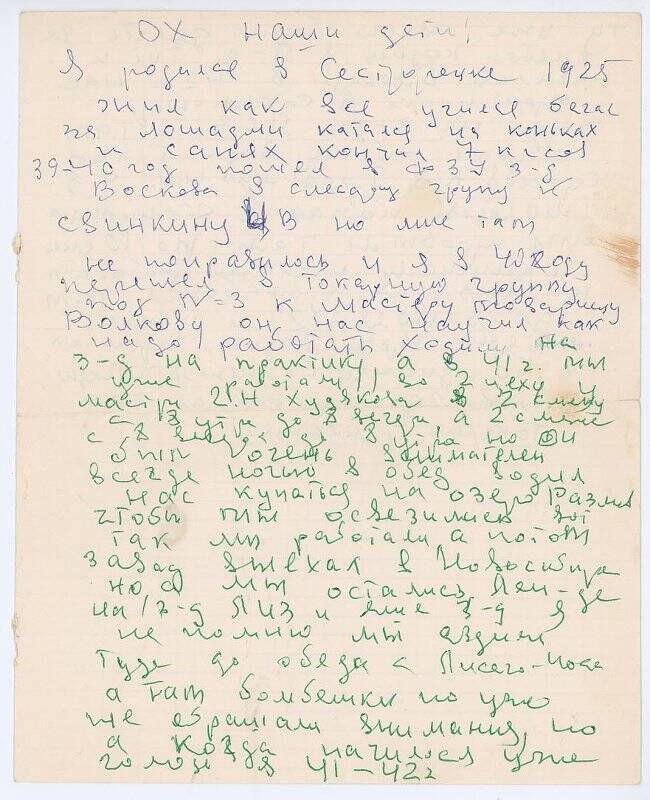 ОХ наши дети!
Я родился в Сестрорецке 1925
жил как все учился бегал
за лошадми катался на коньках
и санях кончил 7 класов
39-40 год пошел в ФЗУ з-д
Воскова в слесарную групу к
свинкину В но мне там
не понравилось и я в 40 году
перешел в токарную группу
под N-3 к мастеру товарищу
Волкову он нас научил как
надо работать ходили на
з-д на практику а в 41 г. мы
уже работали во 2 цеху у
мастра Г.Н Худякова в 2 смены
с 8 утра до 8 вечера а 2 смена
с 8 вечера до 8 утра но он
был очень внимателен
всегда ночью в обед водил
нас купаться на озеро Разлив
чтобы мы освезились вот
так мы работали а потом
завод выехал в Новосибир
но а мы остались Лен-де
на з-д ЛИЗ и еще з-д я
не помню мы ездили
туда до обеда с Лисего-Носа
а там бомбешки но уже
не обращали внимания, но
а когда начился уже
голод в 41-42г